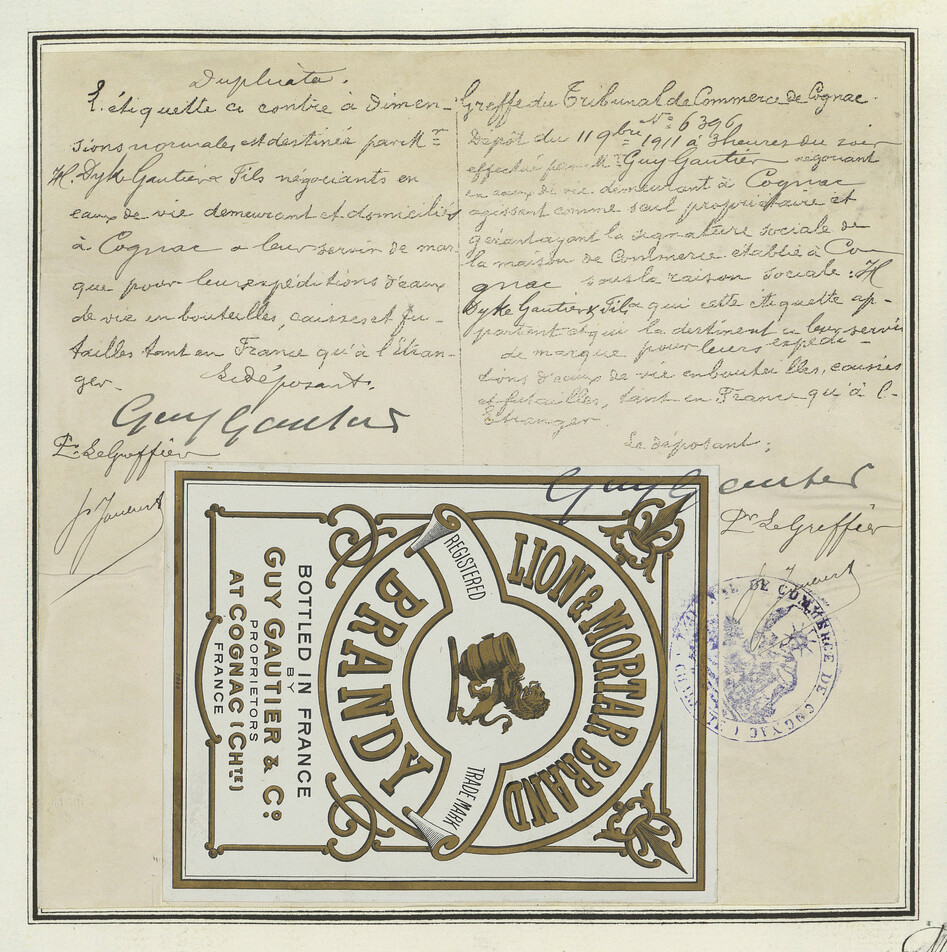 Duplicata.
L'étiquette ci contre à dimen-
sions normales, est destinée par M.rs
H. Dyke Gautier & Fils négociants en
eaux de vie demeurant et domiciliés
à Cognac a leur servir de mar-
que pour leurs expéditions d'eaux
de vie en bouteilles, caisses et fu-
tailles tant en France qu'à l'Etran-
ger. Le déposant,
Guy Gautier
Pr. Le Greffier
Greffe du Tribunal de Commerce de Cognac.
No. 6396
Dépôt du 11 9bre 1911 à 3 heures du soir
effectué par M. Guy Gautier négociant
en eaux de vie demeurant à Cognac
agissant comme seul propriétaire et
gérant ayant la signature sociale de
la maison de Commerce établie à Co-
gnac sous la raison sociale: H
Dyke Gautier & Fils a qui cette étiquette ap-
partient et qui la destinent a leur servir
de marque pour leurs expédi-
tions d'eaux de vie en bouteilles, caisses
et futailles, tant en France qu'à l'-
Etranger
Le déposant,
Guy Gautier
Pr Le Greffier
LION & MORTAR BRAND
REGISTERED
TRADE MARK
BRANDY
BOTTLED IN FRANCE
BY
GUY GAUTIER & Co
PROPRIETORS
AT COGNAC (CHTE)
FRANCE
DE COMMERCE DE COGNAC